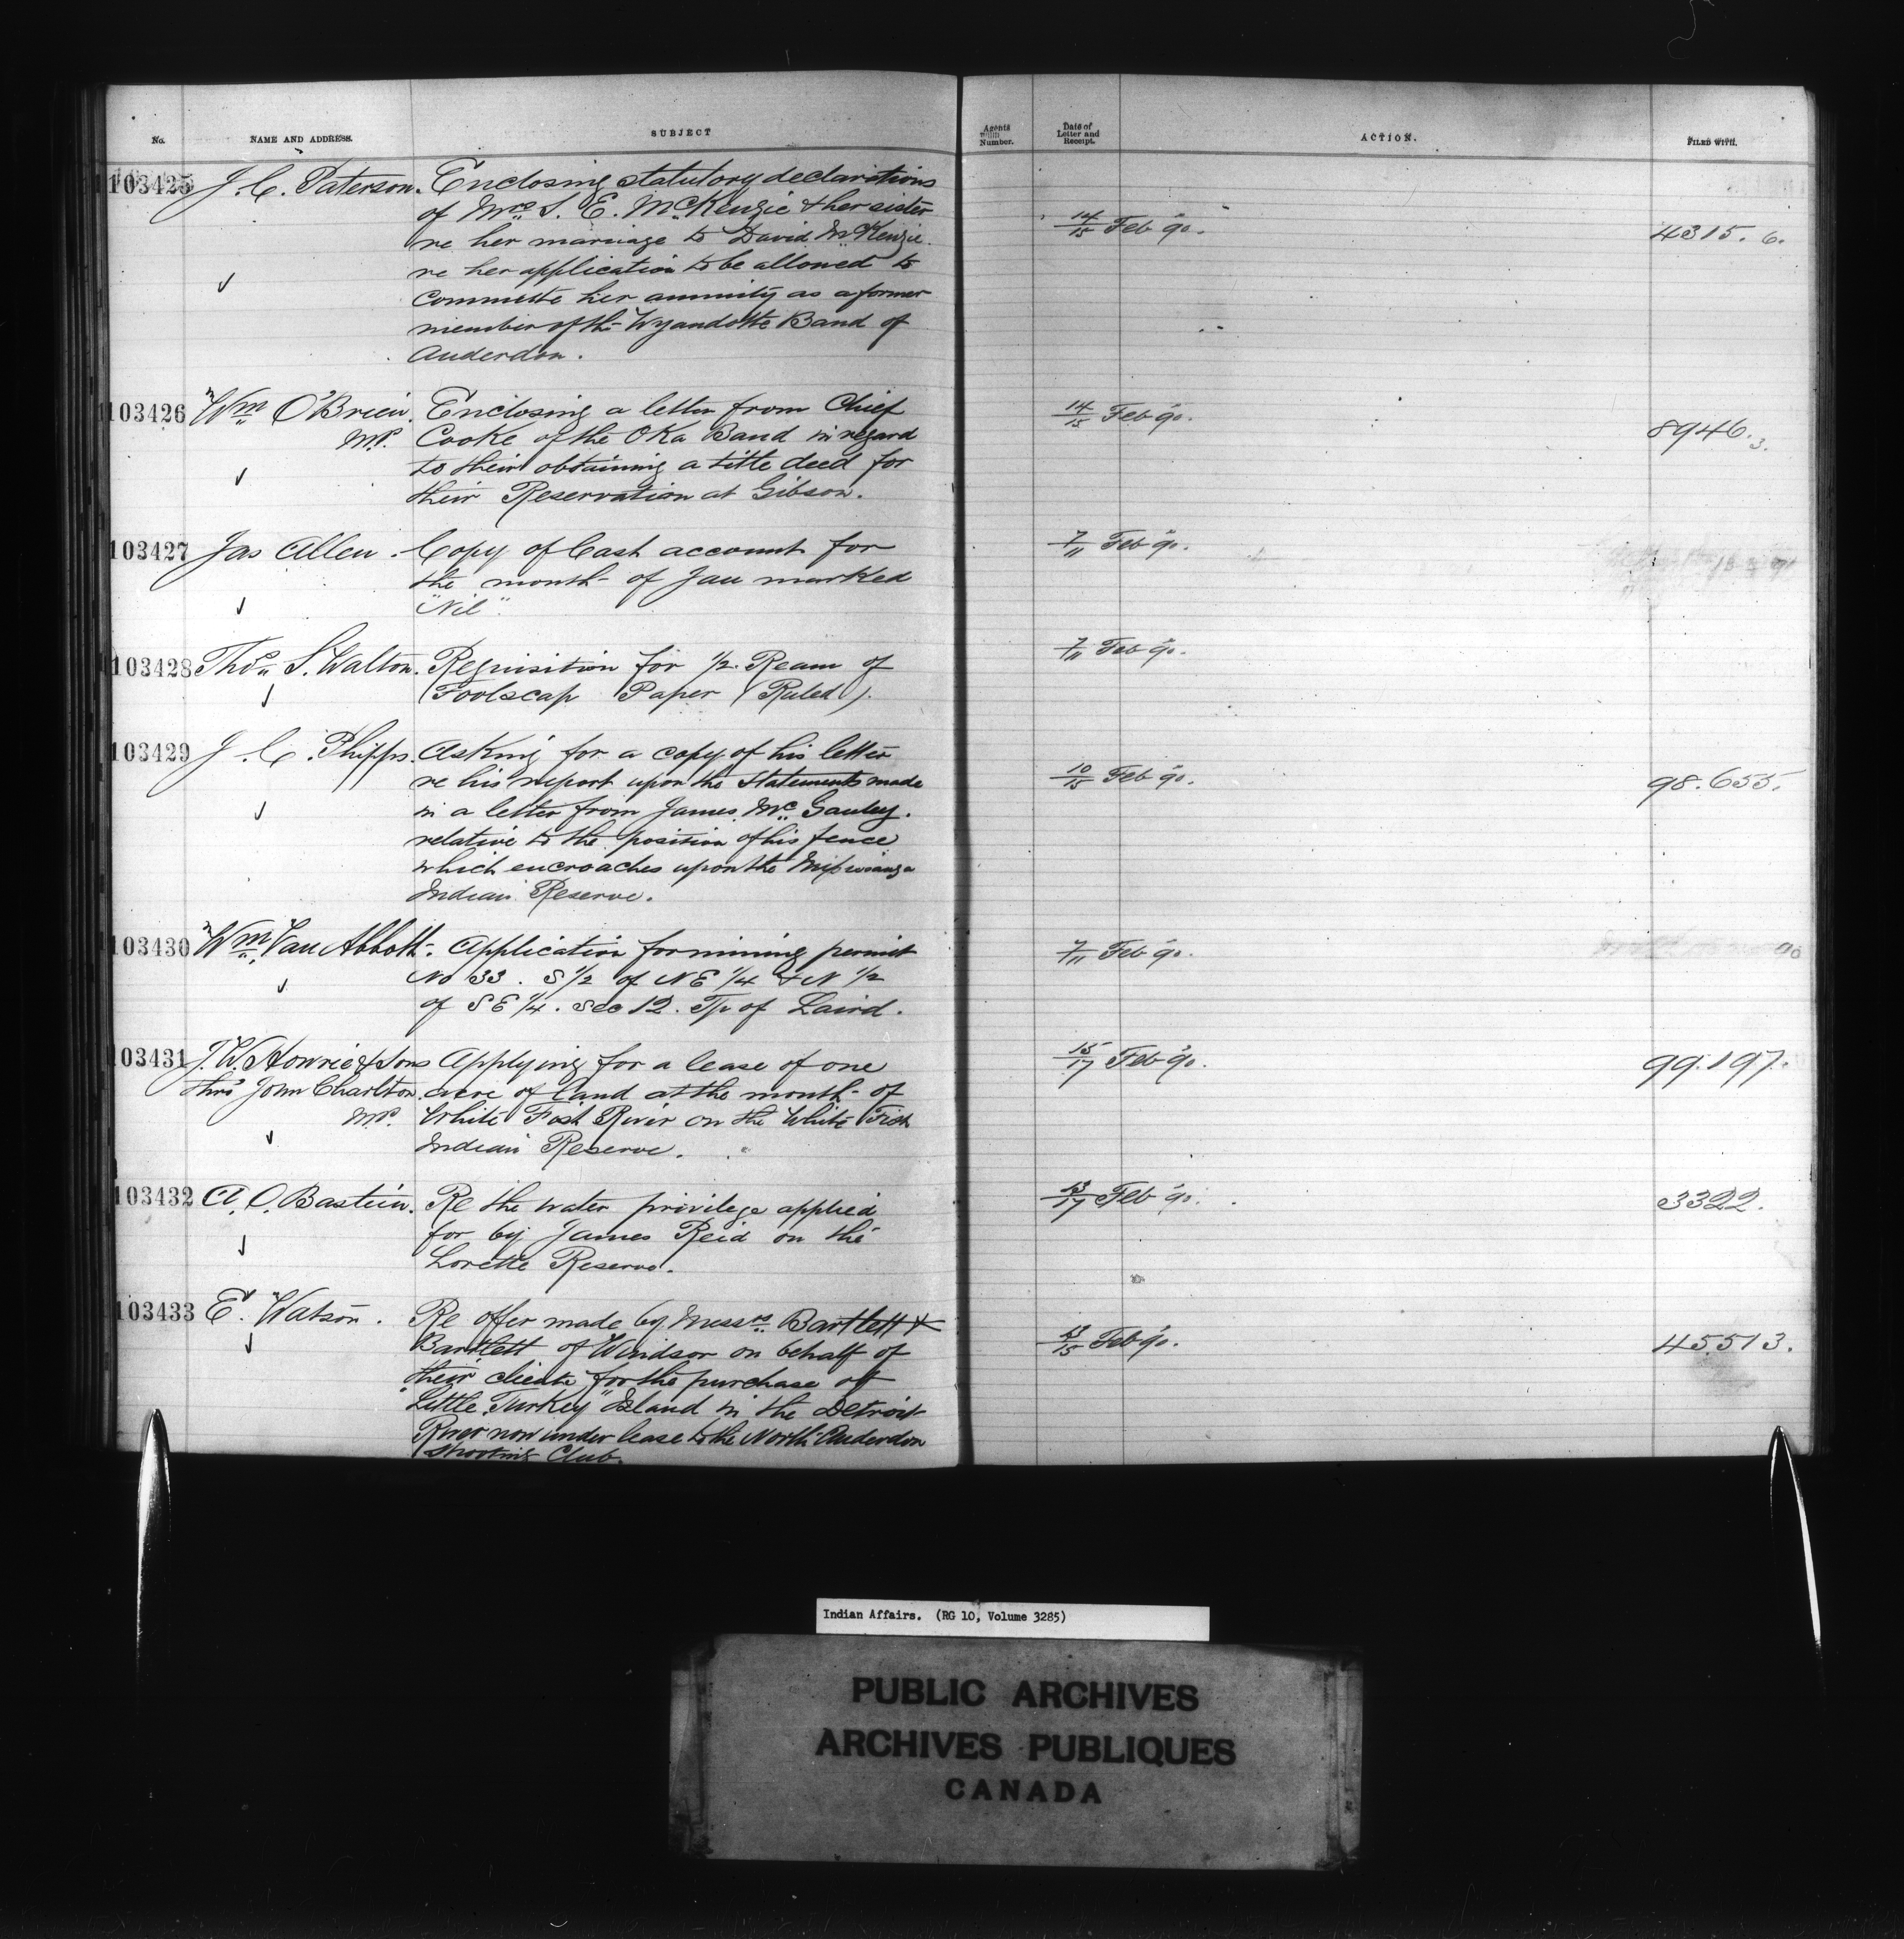 No. NAME AND ADDRESS. SUBJECT Agents Number. Date of Letter and Receipt. ACTION. FILED WITH.
103425 J. C. Paterson. Enclosing statutory declarations
of Mrs S. E. McKenzie & her sister
re her marriage to David McKenzie 14/15 Feb 90. 4315. 6.
re her application to be allowed to
commute her annuity as a former
member of the Wyandotte Band of
Anderdon.
103426 Wm O'Brien. Enclosing a letter from Chief 14/15 Feb 90.
MP. Cooke of the Oka Band in regard 8946. 3.
to their obtaining a title deed for
their Reservation at Gibson.
103427 Jas Allen. Copy of Cash account for 7/11 Feb 90.
the month of Jan marked
"Nil".
103428 Thos S. Walton. Requisition for 1/2 Ream of 7/11 Feb 90.
Foolscap Paper (Ruled).
103429 J. C. Phipps. Asking for a copy of his letter
re his report upon the statements made 10/15 Feb 90. 98.655.
in a letter from James McGauley.
relative to the position of his fence
which encroaches upon the
Indian Reserve.
103430 Wm Van Abbott. Application for mining permit 7/11 Feb 90. 90
No 33. S 1/2 of NE 1/4 & N 1/2
of SE 1/4. Sec 12. Tp of Laird.
103431 J. W. Howrie & Sons Applying for a lease of one 15/17 Feb 90. 99.197.
thro' John Charlton. acre of land at the mouth of
MP. White Fish River on the White Fish
Indian Reserve.
103432 A. O. Bastien. Re the water privilege applied 13/17 Feb 90. 3322.
for by James Reid on the
Lorette Reserve.
103433 E. Watson. Re offer made by Messrs Bartlett &
Bartlett of Windsor on behalf of 13/15 Feb 90. 45.513.
their clients for the purchase of
"Little Turkey" Island in the Detroit
River now under lease to the North Anderdon
Shooting Club.
Indian Affairs. (RG 10, Volume 3285)
PUBLIC ARCHIVES
ARCHIVES PUBLIQUES
CANADA